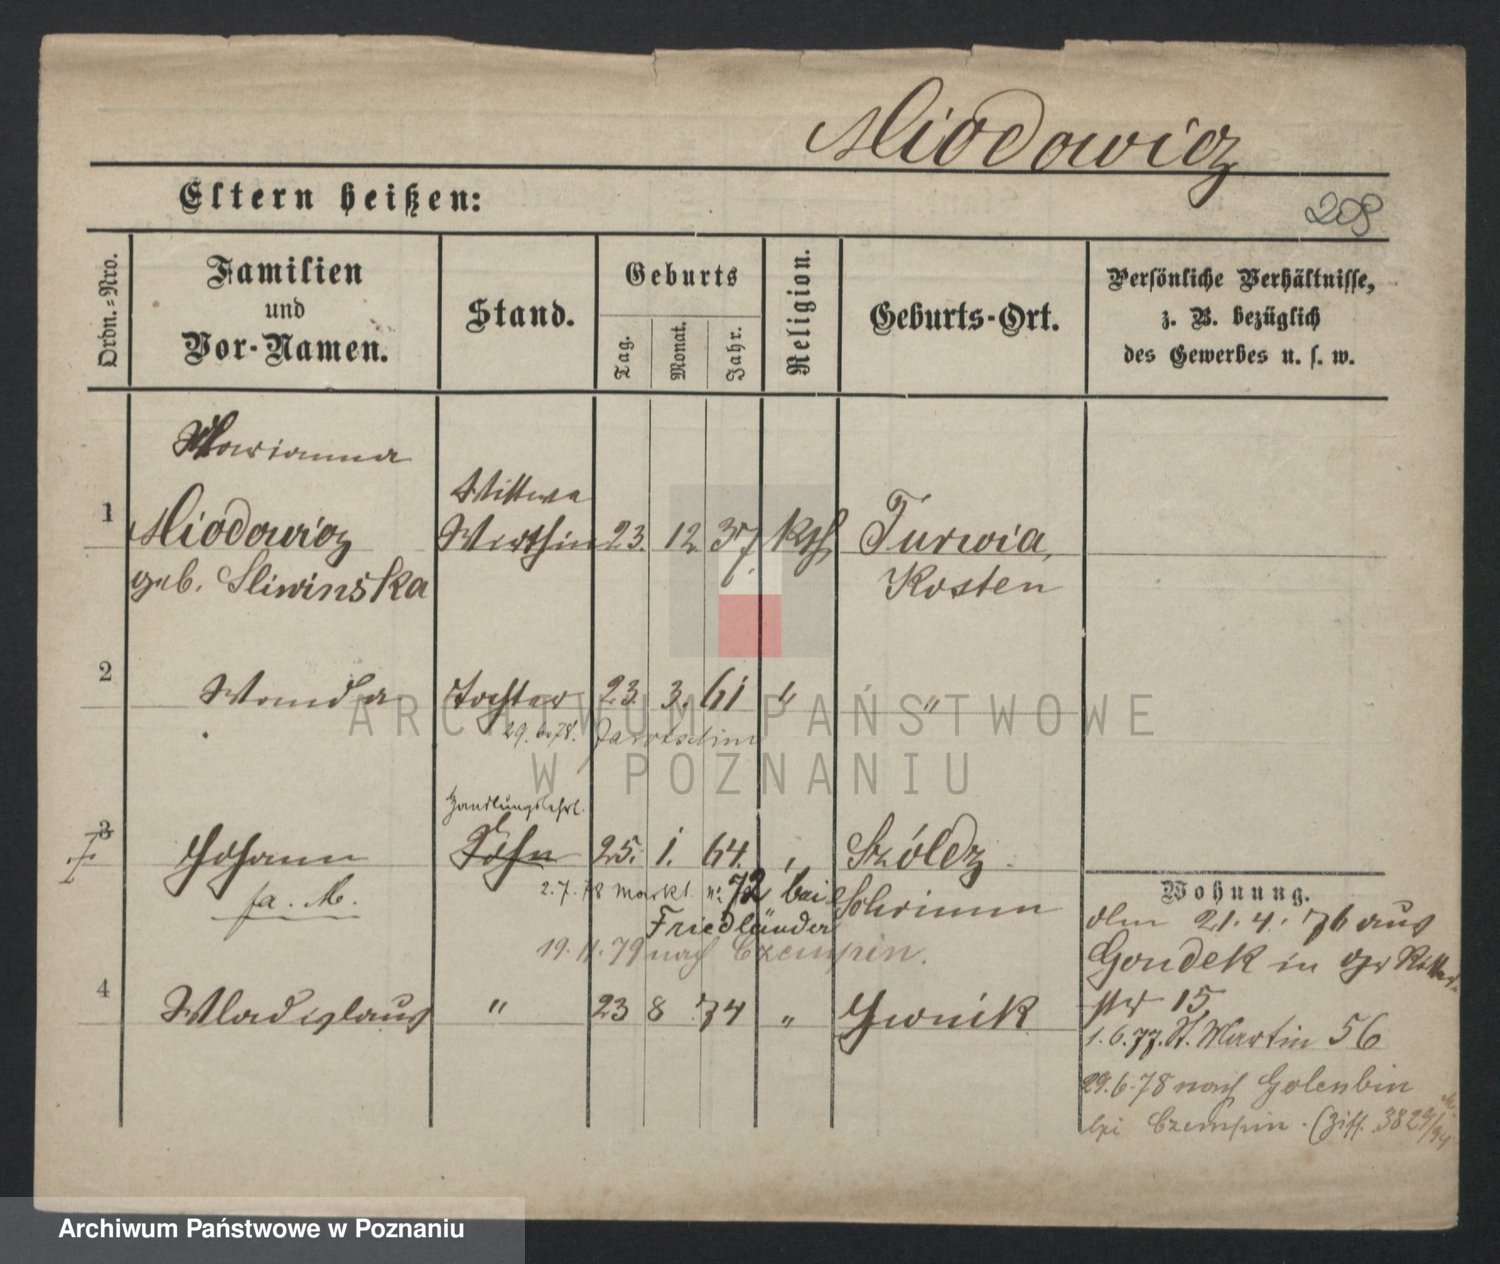 Miodowicz
Eltern heißen:
208
Ordn.=Nro.
Familien
und
Vor-Namen.
Stand.
Geburts
Tag.
Monat.
Jahr.
Religion.
Geburts-Ort.
Persönliche Verhältnisse,
z. B. bezüglich
des Gewerbes u. s. w.
Marianna
1 Miodowicz Wittwe Wirthin 23. 12. 37. kth Turwia,
geb. Sliwinska Kosten
2 Wanda Tochter 23. 3. 61 " "
29.6.78. Jarotschin
Handlungslehrl.
3 Johann Sohn 25. 1. 64. Szóldz
fa. M.
2.7.78 Markt No 72 bei Schrimm
Friedländer
19.11.79 nach Czempin.
4 Wladislaus " 23 8 74 " Gwnik
Wohnung.
dm 21.4.76 aus
Gondek in gr Ritter
str 15
1.6.77. St. Martin 56
29.6.78 nach Golenbin
bei Czempin. (Ziff. 3829/94
ARCHIWUM PAŃSTWOWE
W POZNANIU
Archiwum Państwowe w Poznaniu